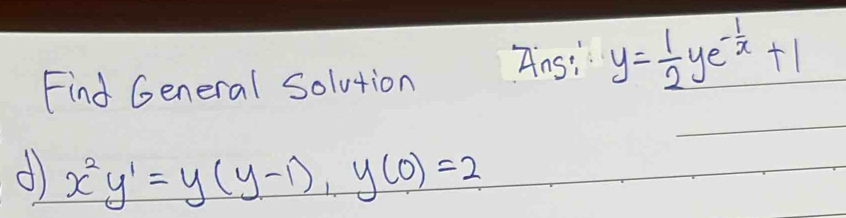 Ans: y = 1/2 ye^(-1/x) + 1
Find General Solution
d) x²y' = y(y-1), y(0) = 2